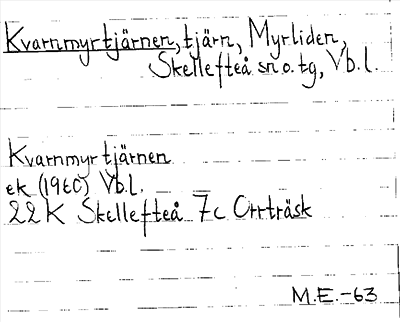 Kvarnmyrtjärnen, tjärn, Myrliden,
Skellefteå sn o. tg, Vb.l.
Kvarnmyrtjärnen
ek (1960) Vb.l.
22K Skellefteå 7c Orrträsk
M.E.-63